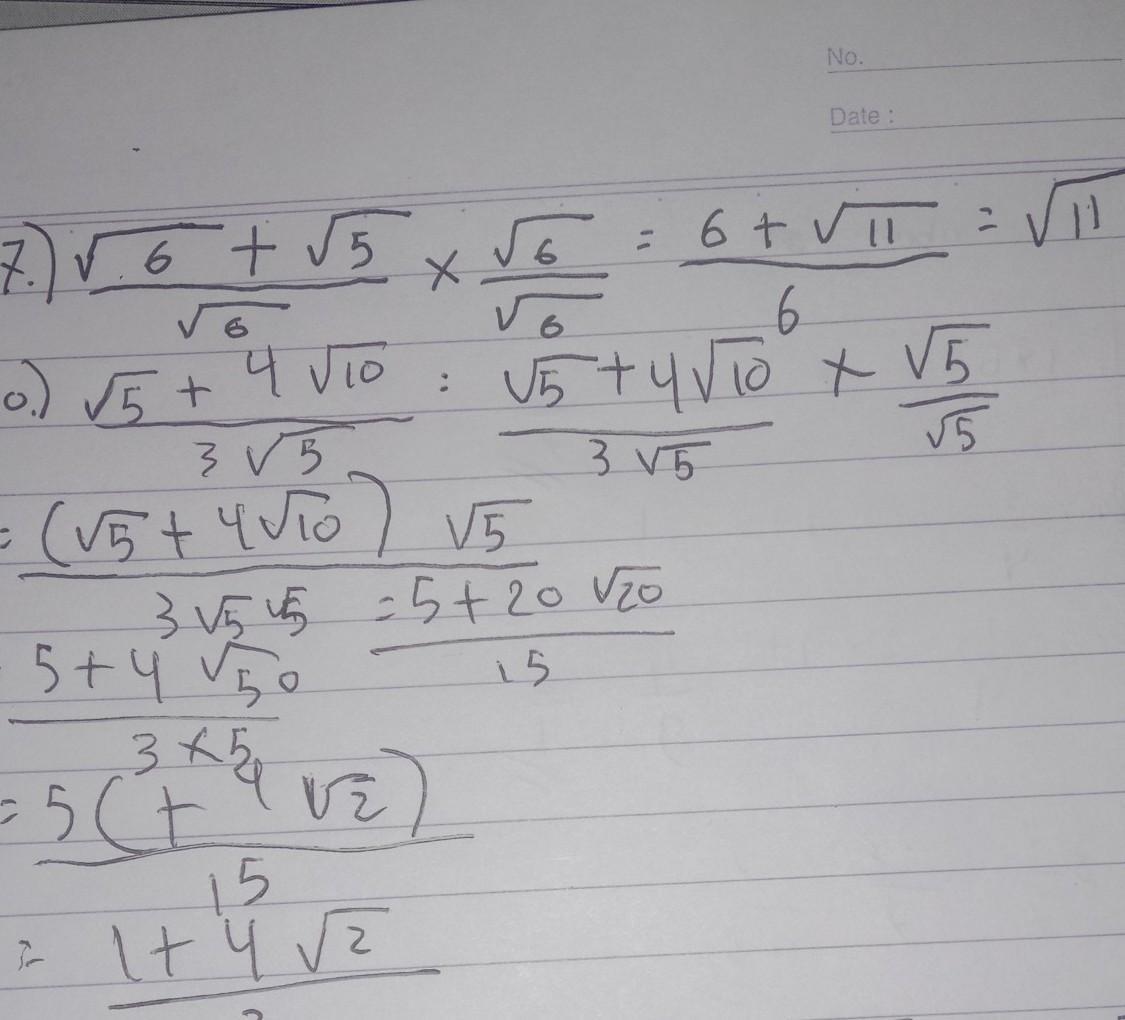 No.
Date :
7.) (√6 + √5)/√6 × √6/√6 = (6 + √11)/6 = √11
0.) (√5 + 4√10)/(3√5) : (√5 + 4√10)/(3√5) × √5/√5
= ((√5 + 4√10) √5)/(3√5 √5) = (5 + 20√20)/15
(5 + 4√50)/(3 × 5)
= 5( + 4√2)/15
= (1 + 4√2)/